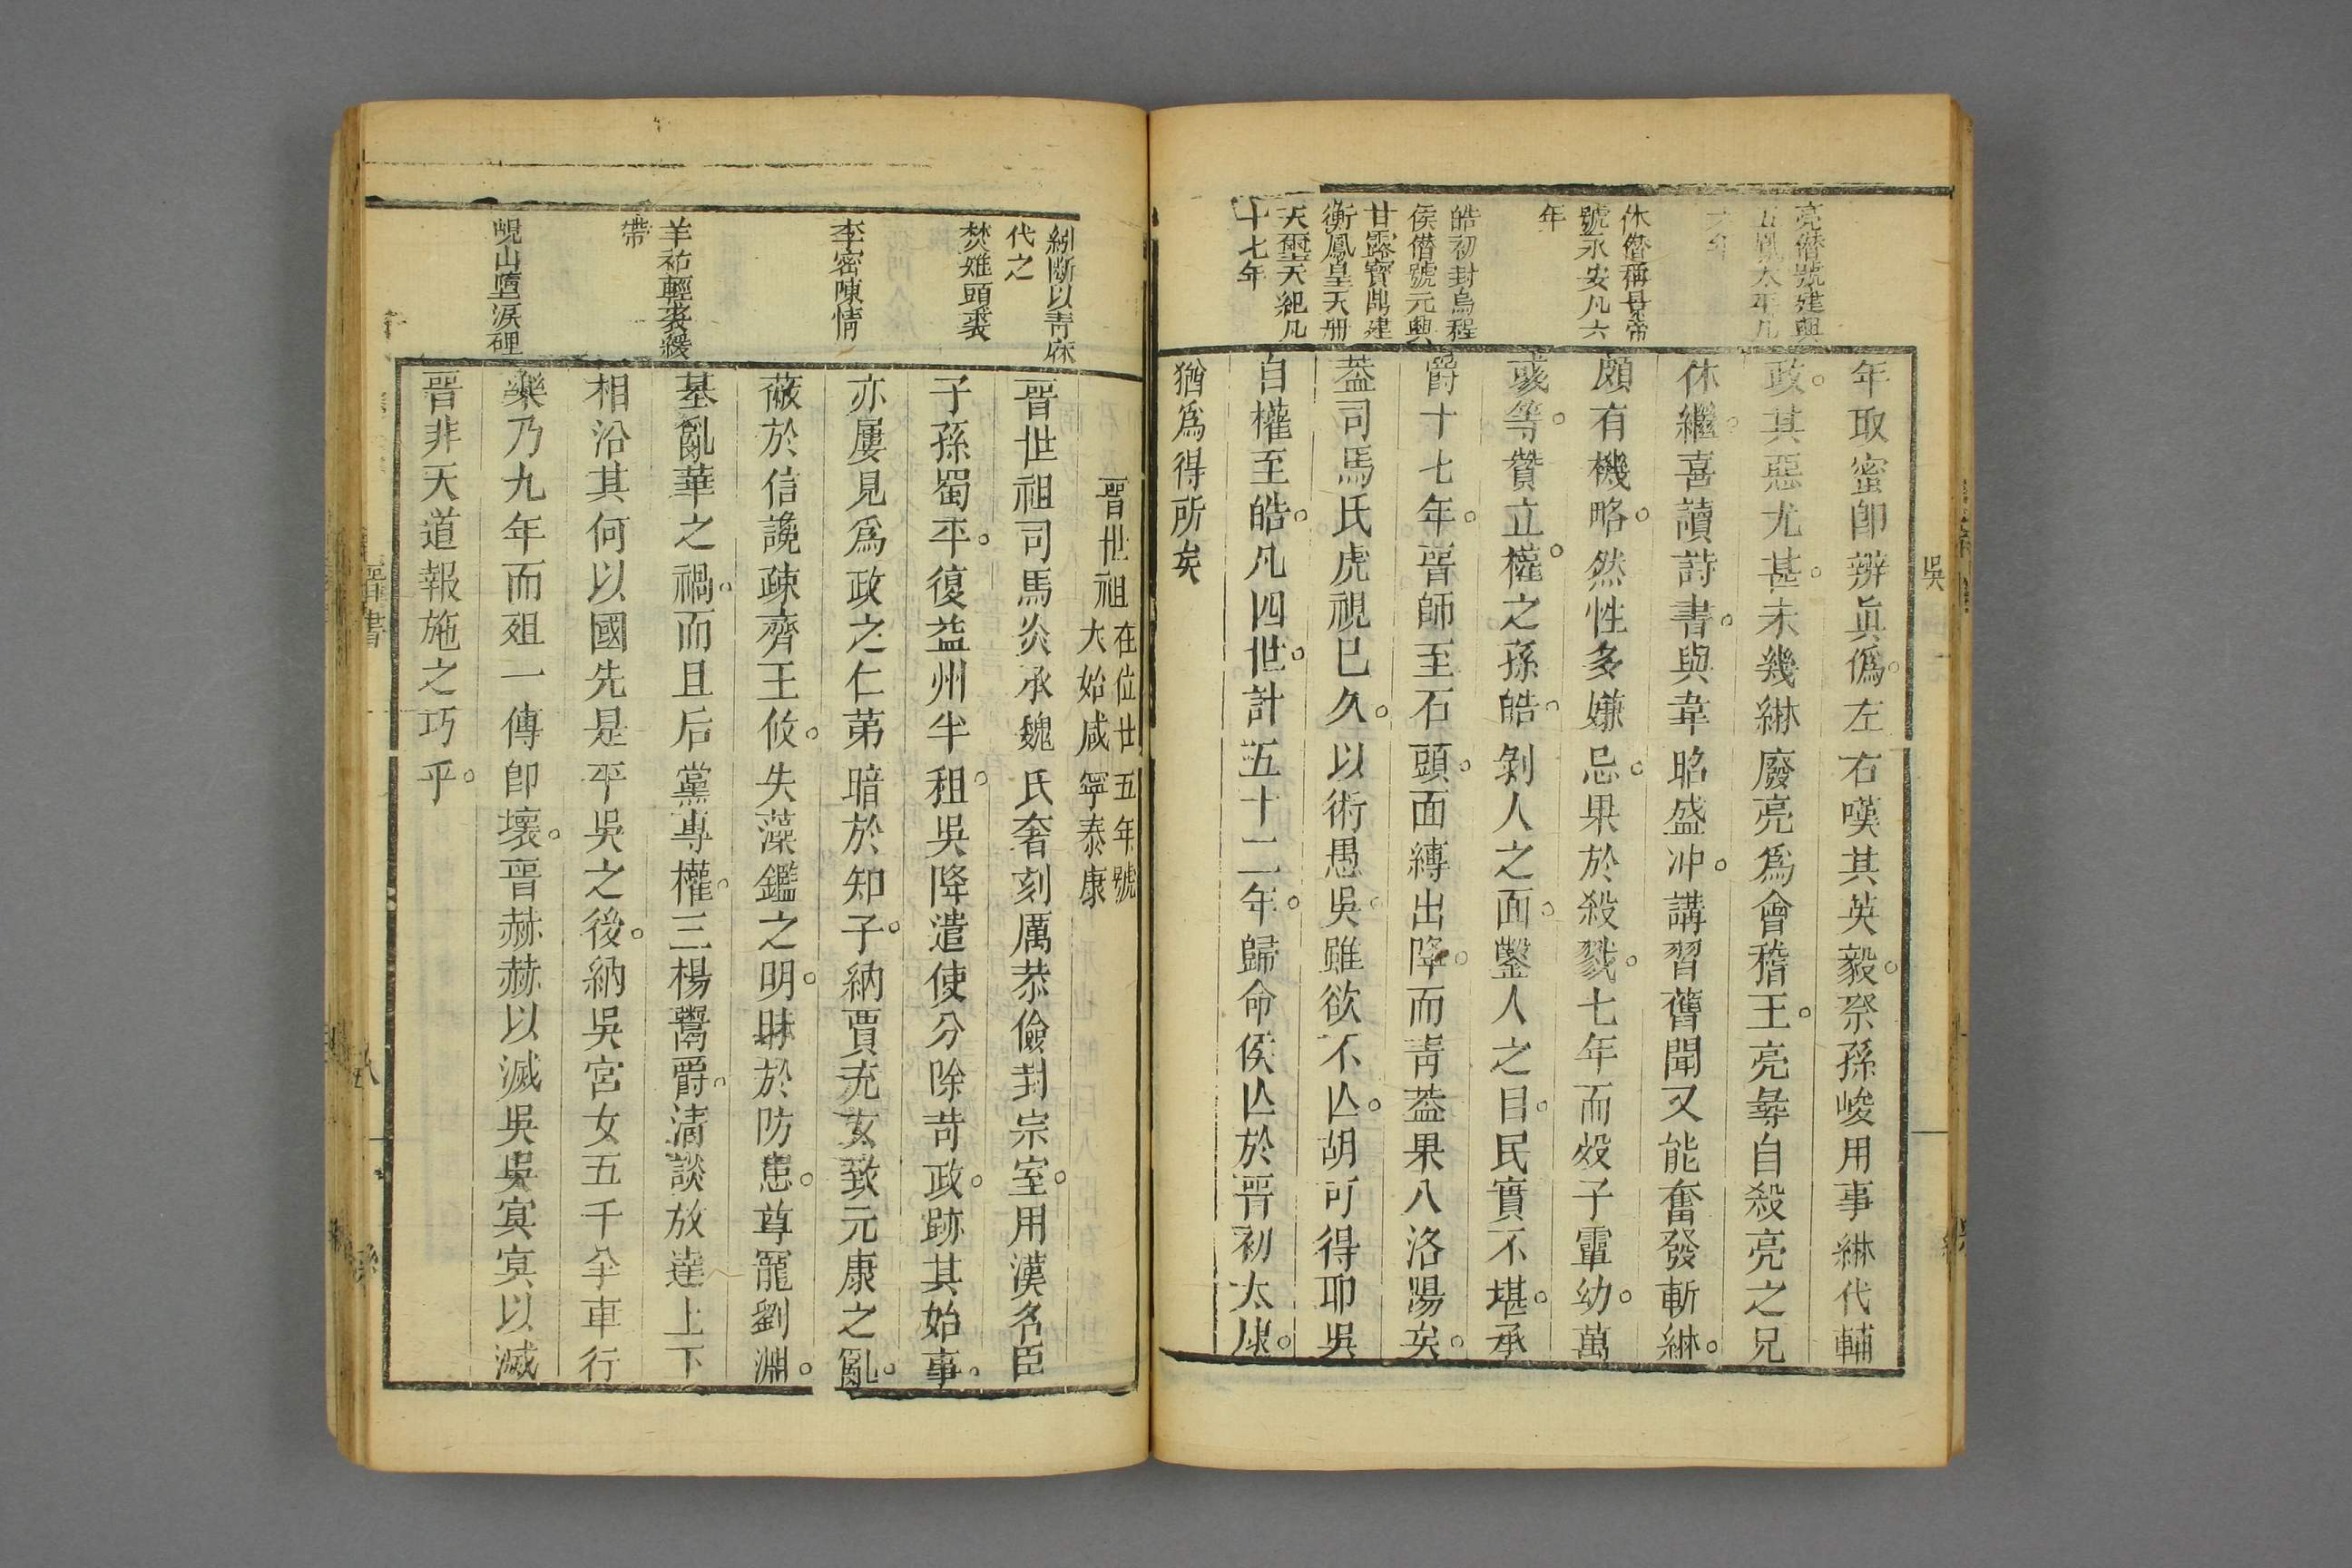 吳
亮僭號建興
五鳳太平凡
六年
休僭稱景帝
號永安凡六
年
皓初封烏程
侯僭號元興
甘露寶鼎建
衡鳳皇天册
天璽天紀凡
十七年
年取蜜卽辨眞僞。左右嘆其英毅。祭孫峻用事綝代輔
政。其惡尤甚。未幾綝廢亮爲會稽王。亮尋自殺亮之兄
休繼。喜讀詩書。與韋昭盛冲。講習舊聞又能奮發斬綝。
頗有機略。然性多嫌忌。果於殺戮。七年而歿子䨇幼。萬
彧等。贊立權。之孫皓。剝人之面。鑿人之目。民實不堪。承
爵十七年。晉師至石頭。面縛出降。而靑葢果入洛陽矣。
葢司馬氏虎視已久。以術愚吳。雖欲不亾。胡可得耶吳
自權至皓。凡四世。計五十二年。歸命侯亾於晉初太康。
猶爲得所矣
紖斷以靑麻
代之
焚雉頭裘
李密陳情
羊祜輕裘緩
帶
峴山墮淚碑
晉世祖 在位廿五年號
大始咸寧泰康
晉世祖司馬炎承魏氏奢刻厲恭儉封宗室。用漢名臣
子孫蜀平。復益州半租。吳降遣使分除苛政。跡其始事。
亦屢見爲政之仁第暗於知子。納賈充女致元康之亂。
蔽於信讒疎齊王攸。失藻鑑之明。昧於防患。尊寵劉淵。
基亂華之禍。而且后黨專權。三楊鬻爵。清談放達上下
相沿其何以國先是平吳之後。納吳宮女五千羊車行
樂乃九年而殂一傳卽壞。晉赫赫以滅吳吳冥冥以滅
晉非天道報施之巧乎。
晉書